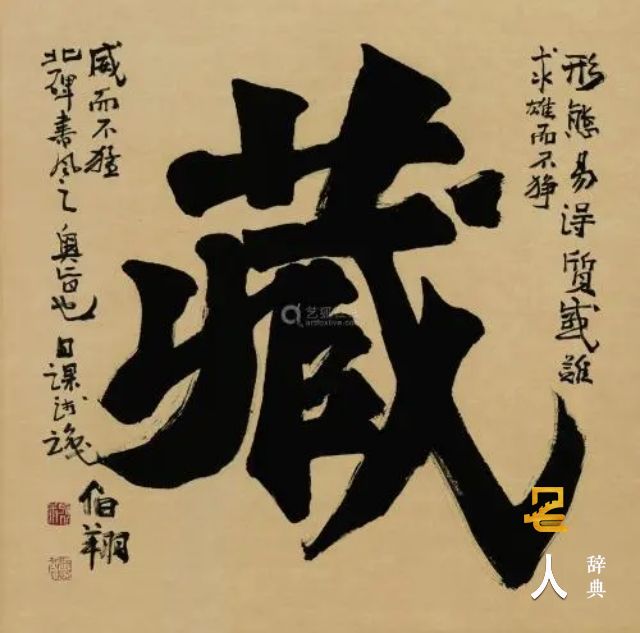 形態易得質感難
求雄而不猙
藏
威而不猛
北碑書風之奧旨也 日課
伯翔
艺狐在线
artfoxlive.com
名人
辞典